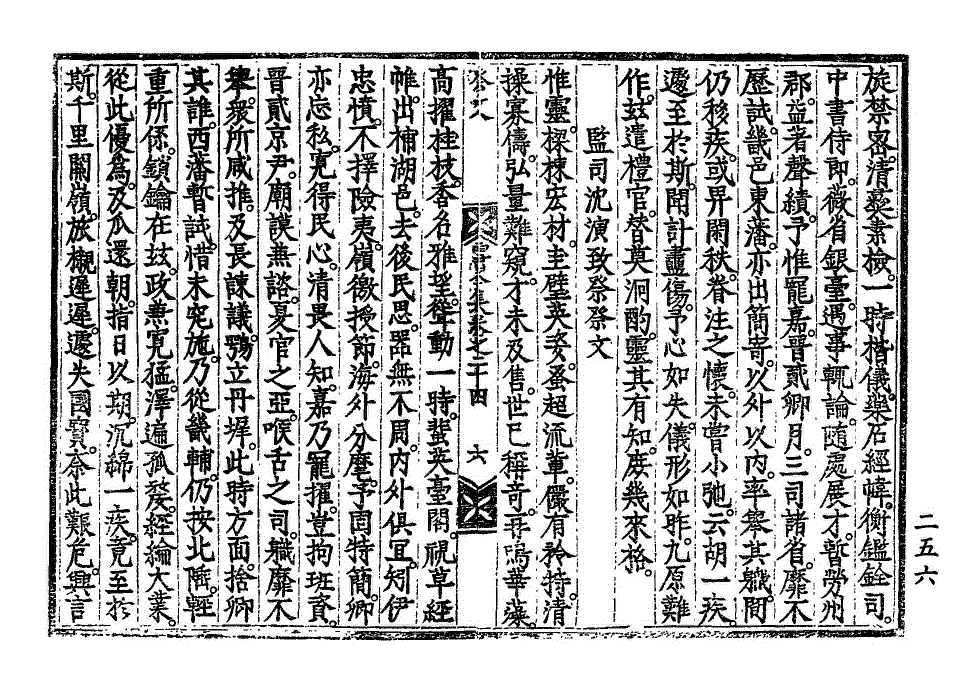 旋禁密。清裁素檢。一時楷儀。藥石經幃。衡鑑銓司。
中書侍郞。薇省銀臺。遇事輒論。隨處展才。暫勞州
郡。益著聲績。予惟寵嘉。晉貳卿月。三司諸省。靡不
歷試。畿邑東藩。亦出簡寄。以外以內。率擧其職。間
仍移疾。或畀閑秩。眷注之懷。未嘗小弛。云胡一疾
遽至於斯。聞訃盡傷。予心如失。儀形如昨。九原難
作。玆遣禮官替奠泂酌。靈其有知。庶幾來格。
監司沈演致祭祭文
惟靈。樑棟宏材。圭璧英姿。蚤超流輩。儼有矜持。淸
操寡儔。弘量難窺。才未及售。世已稱奇。再鳴華藻。
祭文
集卷之二十四
六
高擢桂枝。香名雅望。聳動一時。蜚英臺閣。視草經
帷。出補湖邑。去後民思。器無不周。內外俱宜。矧伊
忠憤。不擇險夷。嶺徼授節。海外分麾。予固特簡。卿
亦忘私。寬得民心。淸畏人知。嘉乃寵擢。豈拘班資。
晉貳京尹。廟謨無諮。夏官之亞。喉舌之司。職靡不
擧。衆所咸推。及長諫議。鶚立丹墀。此時方面。捨卿
其誰。西藩暫試。惜未究施。乃從畿輔。仍按北陲。輕
重所係。鎖鑰在玆。政兼寬猛。澤遍孤嫠。經綸大業。
從此優爲。及瓜還朝。指日以期。沉綿一疾。竟至於
斯。千里關嶺。旅櫬遲遲。遽失國寶。奈此艱危。興言
二五六